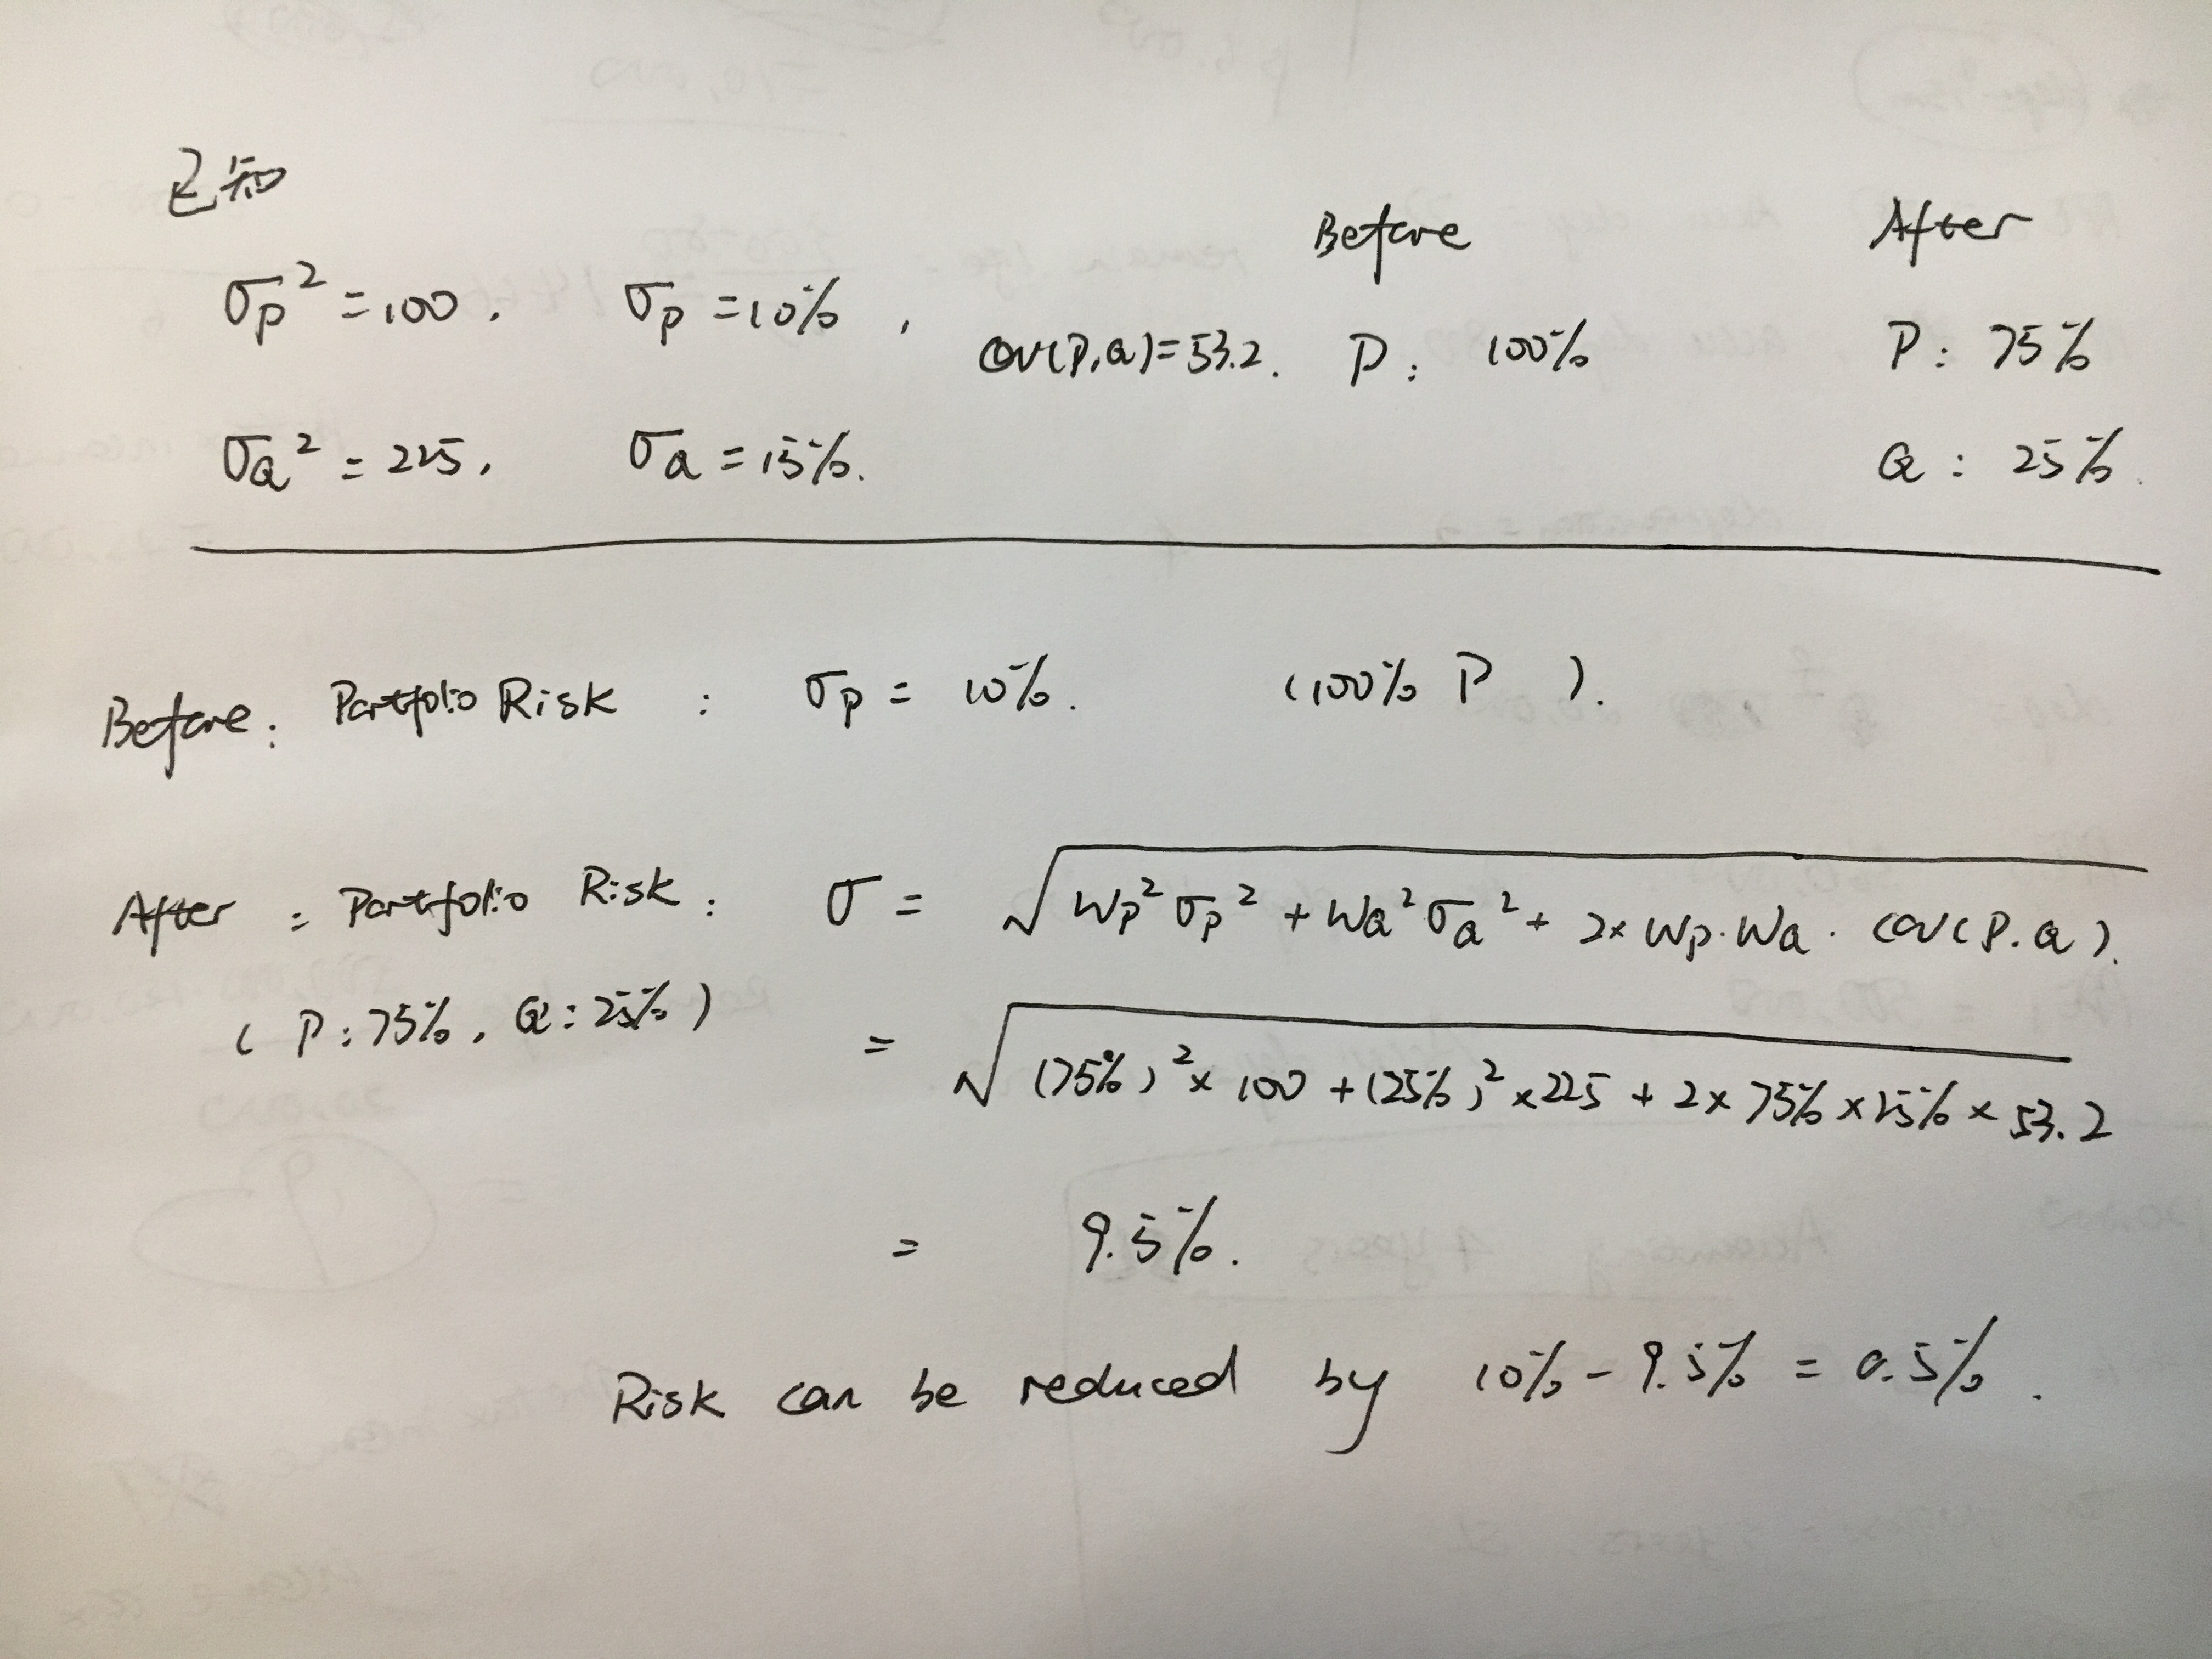 已知
Before After
σp² = 100, σp = 10%, cov(P,Q) = 53.2. P: 100% P: 75%
σQ² = 225, σQ = 15%. Q: 25%.
Before: Portfolio Risk: σp = 10%. (100% P).
After: Portfolio Risk: σ = √(Wp²σp² + WQ²σQ² + 2×Wp·WQ·cov(P.Q).
(P: 75%, Q: 25%)
= √(75%)²×100 + (25%)²×225 + 2×75%×25%×53.2
= 9.5%.
Risk can be reduced by 10% - 9.5% = 0.5%.